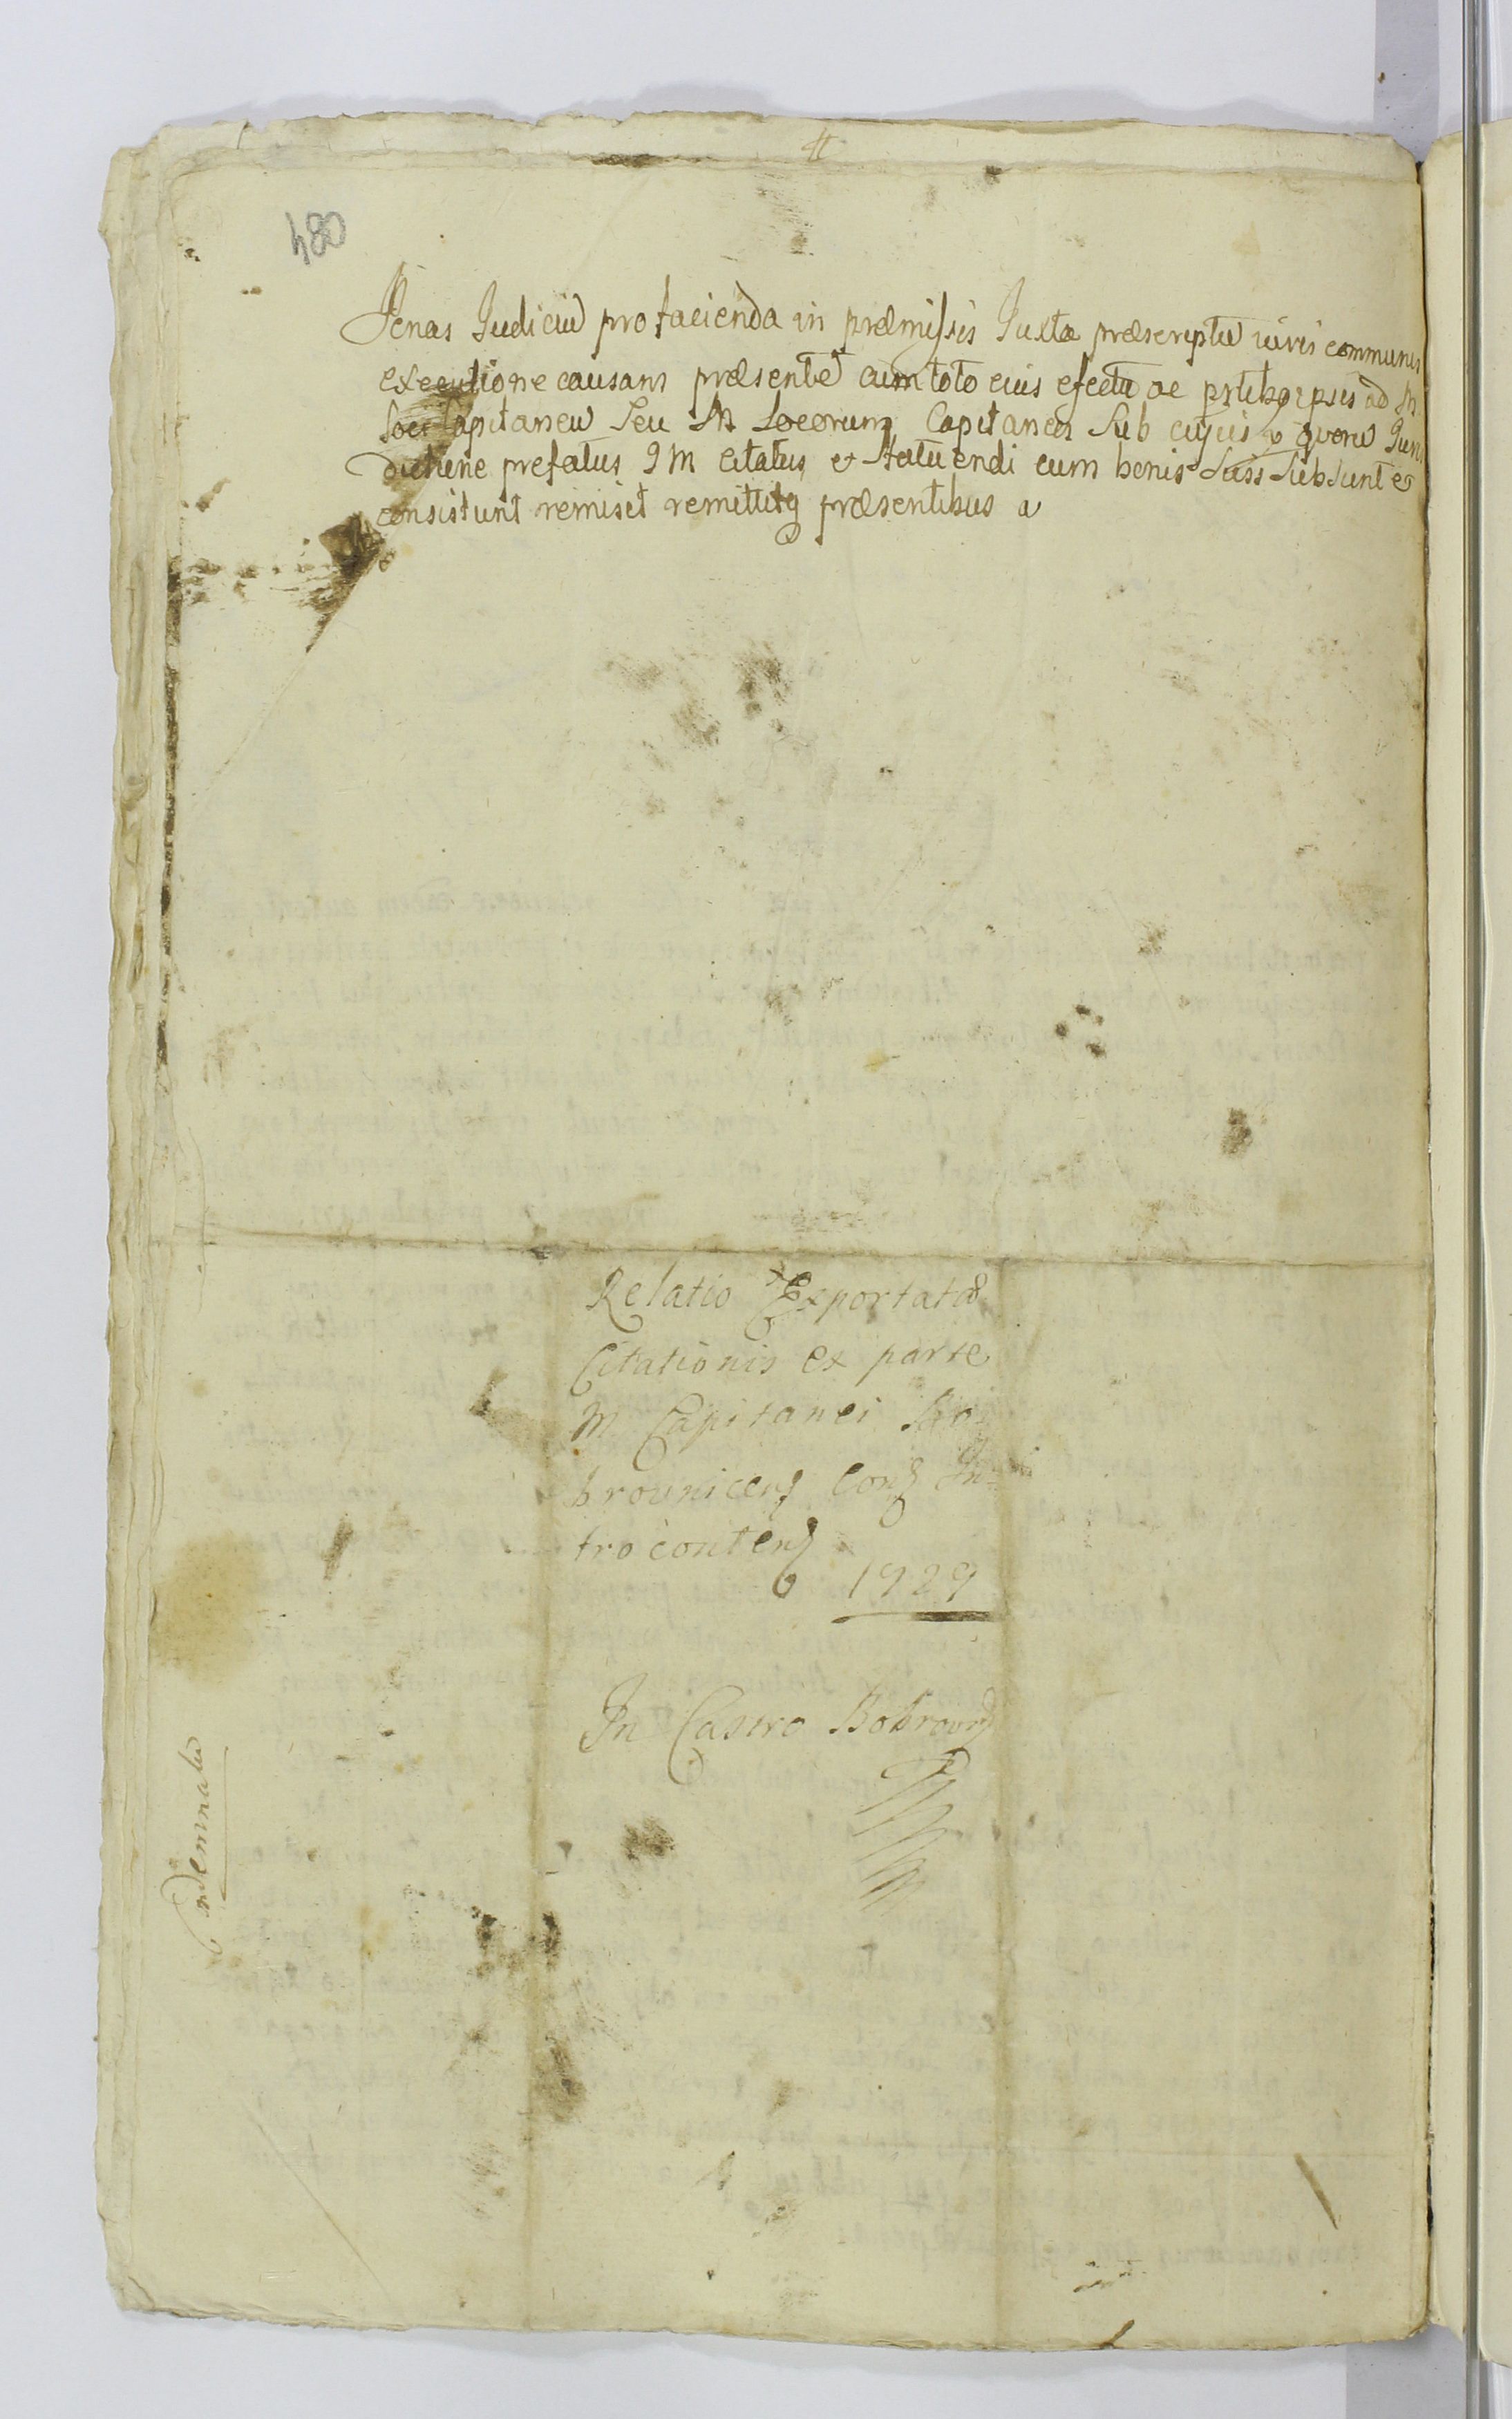 480
Penas Judiciu pro facienda in præmissis Juxta præscriptu iuris communis
executione causam præsente cum toto eius efectu ac ptibg ipsis ad M
loci Capitaneu Seu M Locorum Capitaneos Sub cujus v qvoru Juris
dictione prefatus G M Citatus et statuendi cum bonis Suis Subsunt et
consistunt remisit remittitq præsentibus a
Relatio Exportatæ
Citationis ex parte
M Capitanei Bo
brovnicens Cons In
trocontens
1729
In Castro Bobrovn
Condemnatu